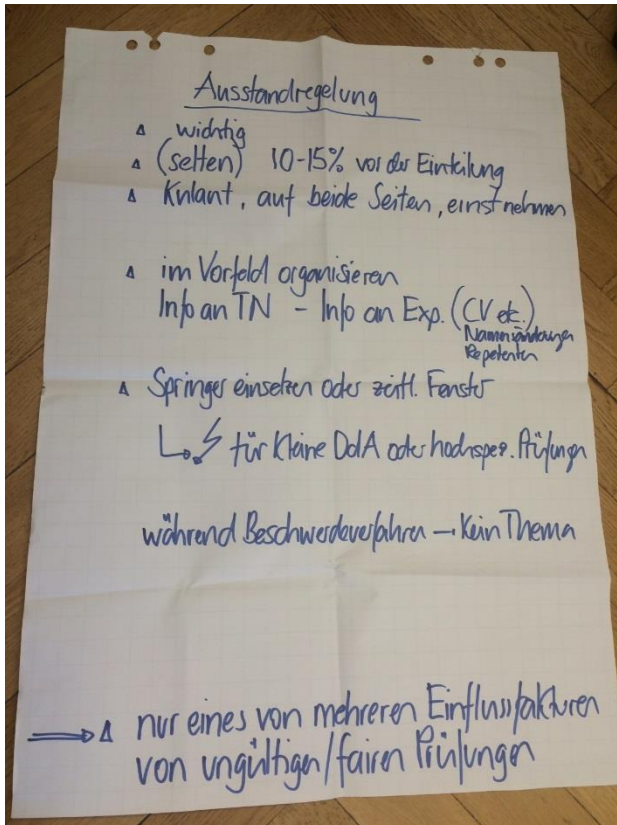 Ausstandregelung
∆ wichtig
∆ (selten) 10-15% vor der Einteilung
∆ Kulant, auf beide Seiten, ernst nehmen
∆ im Vorfeld organisieren
Info an TN – Info an Exp. (CV etc.)
Namensänderungen
Repetenten
∆ Springer einsetzen oder zeitl. Fenster
für kleine OdA oder hochspez. Prüfungen
während Beschwerdeverfahren → kein Thema
⇒ ∆ nur eines von mehreren Einflussfakturen
von ungültigen/fairen Prüfungen